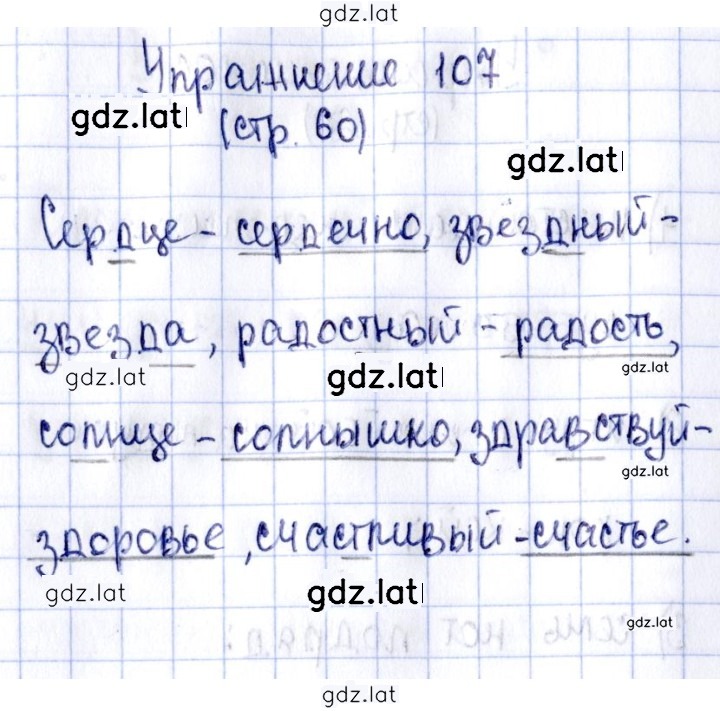 gdz.lat
Упражнение 107
gdz.lat
(стр. 60)
gdz.lat
Сердце - сердечно, звёздный -
звезда, радостный - радость,
gdz.lat gdz.lat gdz.lat
солнце - солнышко, здравствуй -
gdz.lat
здоровье, счастливый - счастье.
gdz.lat gdz.lat
gdz.lat
gdz.lat